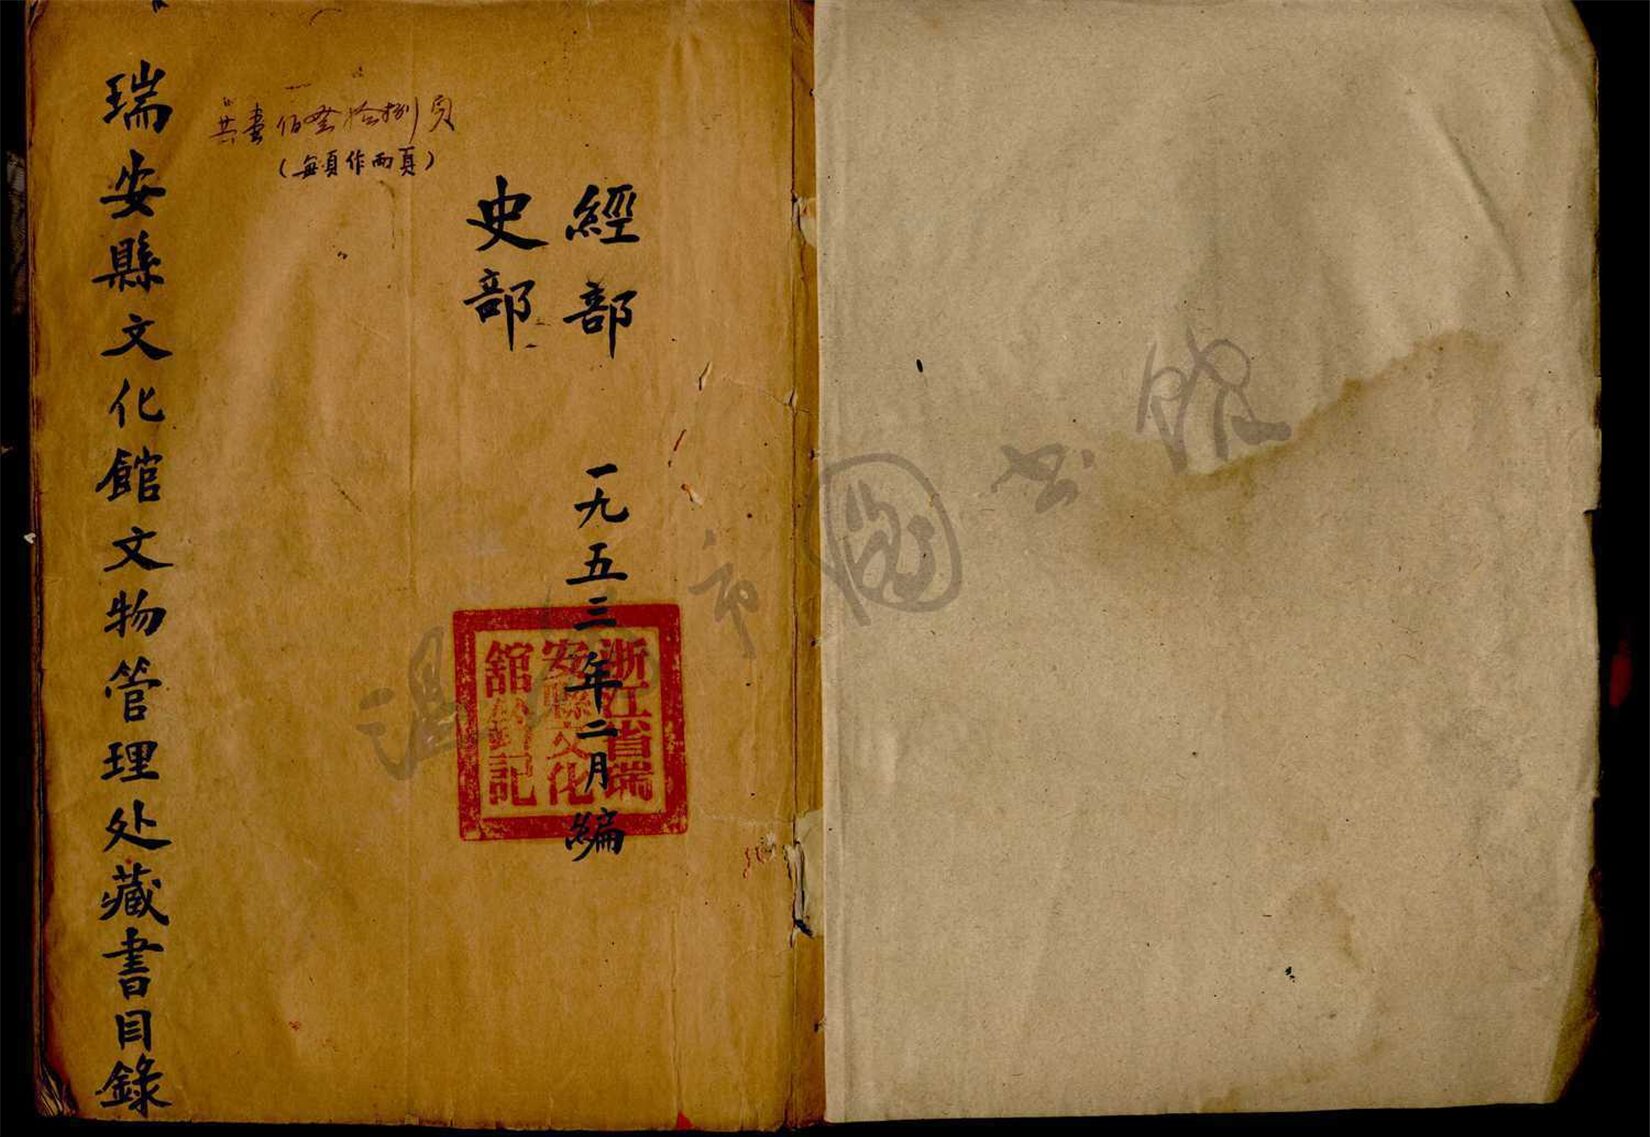 瑞安縣文化館文物管理处藏書目錄
共壹佰叁拾捌页
(每頁作两頁)
經部
史部
一九五三年二月編
浙江省瑞
安縣文化
館鈐記
温州市图书馆